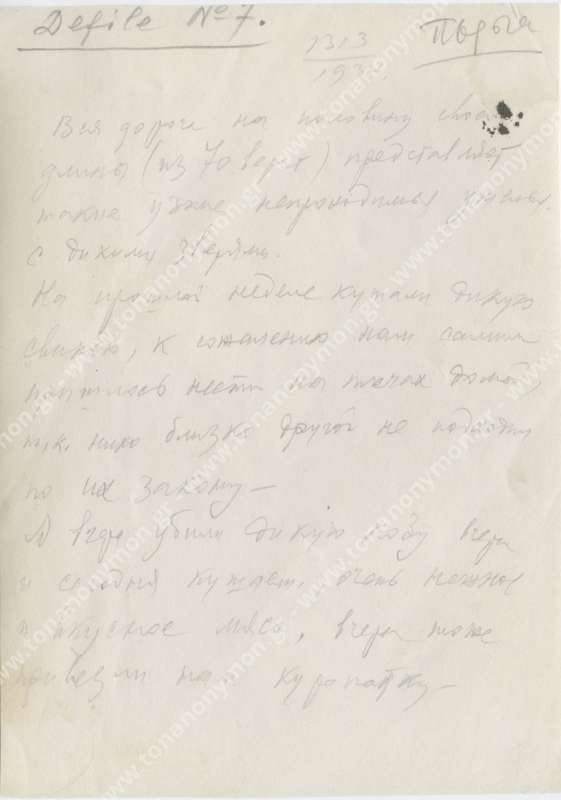 Defile № 7.
1313
193
Вся дорога на половину своей
длины (из 70 верст) представляет
такие узкие непроходимые
с дикими зверями.
На прошлой неделе кушали дикую
свинью, к сожалению нам самим
пришлось нести на плечах домой,
т.к. никто близко другой не подходил
по их закону —
А вчера убили дикую козу вчера
и сегодня кушаем. очень нежное
и вкусное мясо, вчера тоже
привезли нам куропатку —
www.tonanonymon.gr - www.tonanonymon.gr